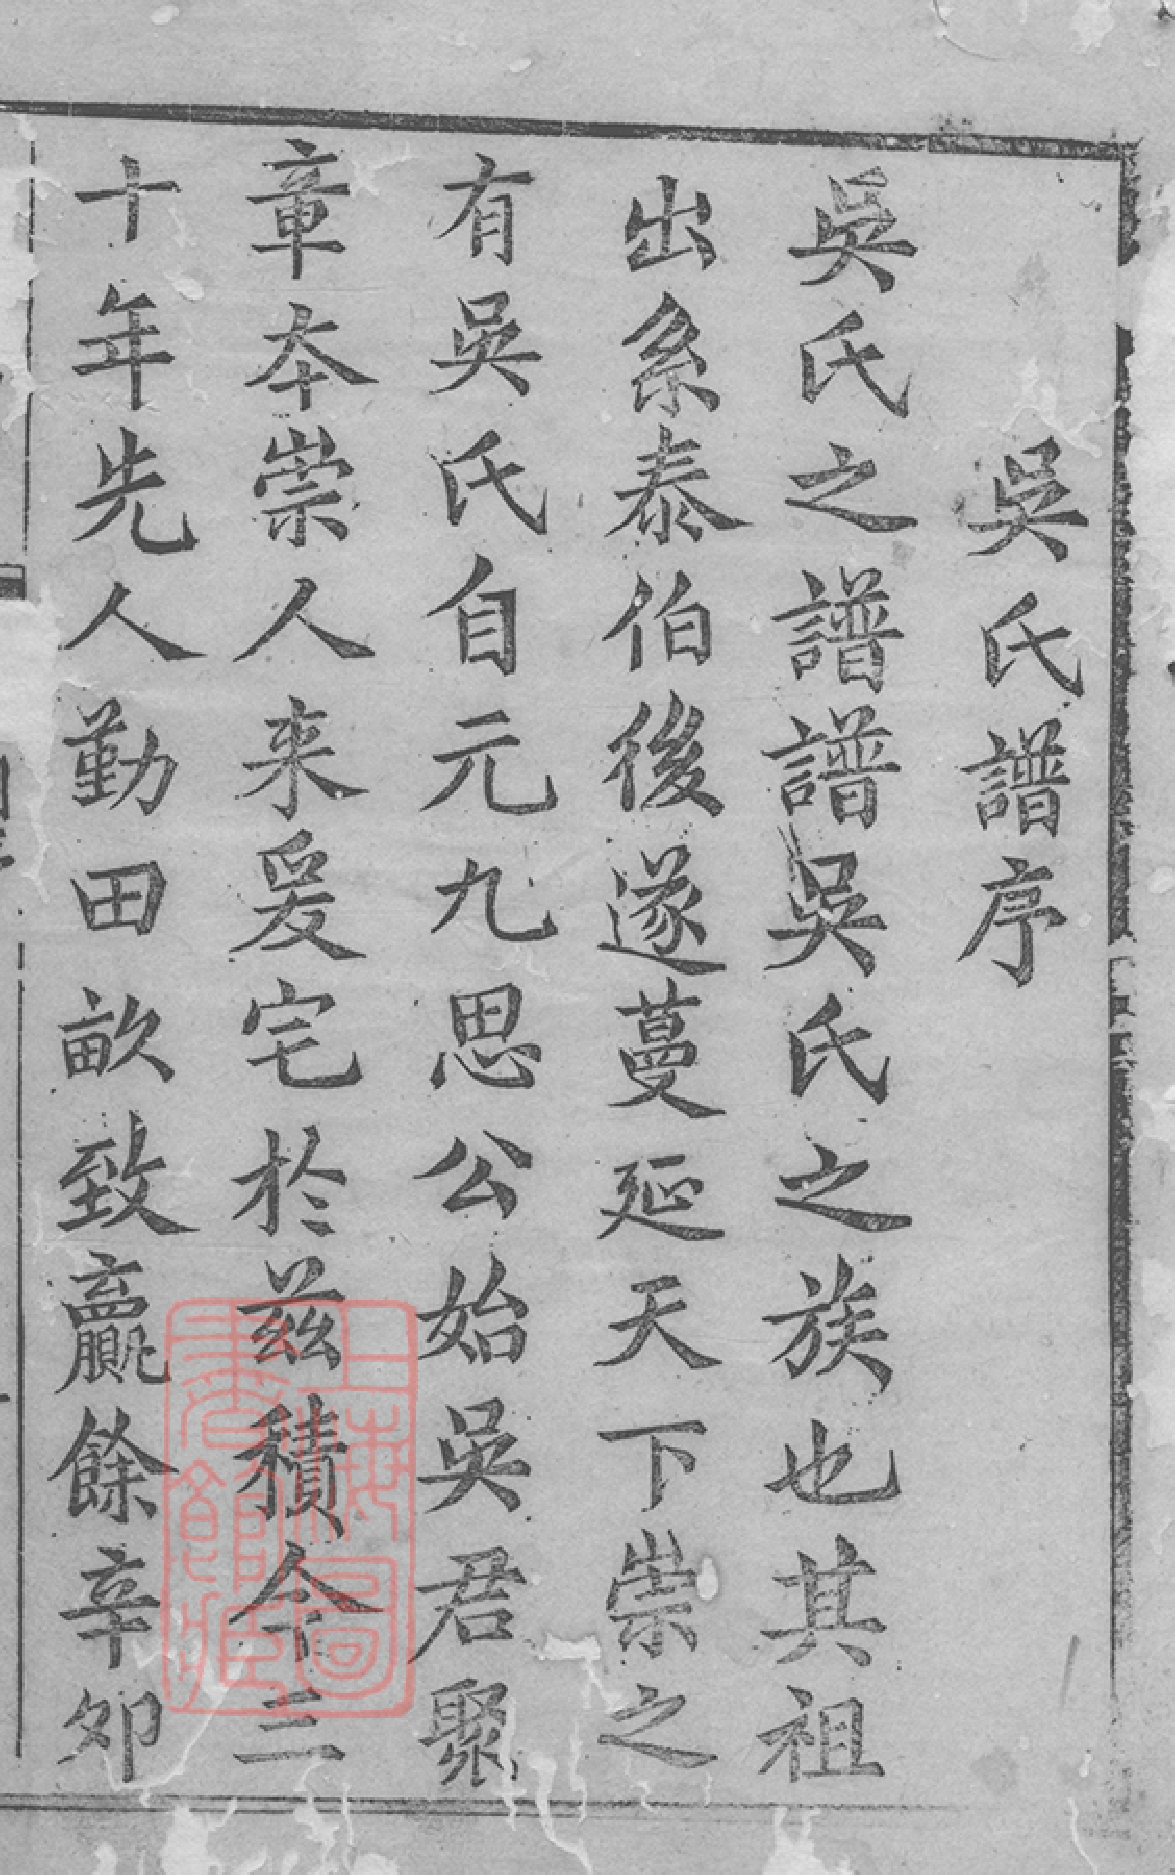 吳氏譜序
吳氏之譜譜吳氏之族也其祖
出系泰伯後遂蔓延天下崇之
有吳氏自元九思公始吳君聚
章本崇人来爰宅於兹積今三
十年先人勤田畝致贏餘辛夘
上海圖書館藏